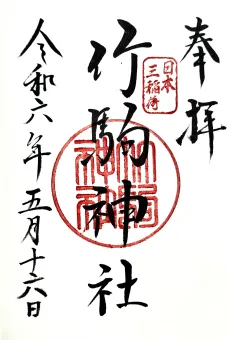 奉拝
日本
三稲荷
竹駒神社
令和六年五月十六日